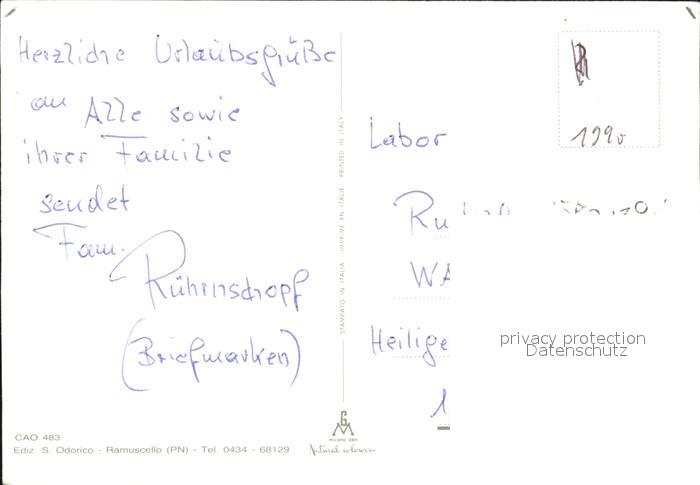 Herzliche Urlaubsgrüße
an Alle sowie
ihrer Familie
sendet
Fam.
Rührnschopf
(Briefmarken)
CAO 483
Ediz. S. Odorico - Ramuscello (PN) - Tel. 0434 - 68129
STAMPATO IN ITALIA IMPRIMÉ EN ITALIE PRINTED IN ITALY
GM
milano dan
Natural colours
1990
Labor
Ru
WA
Heilige
1
privacy protection
Datenschutz